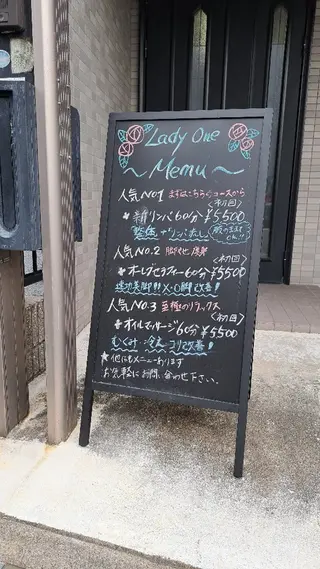 Lady One
～Memu～
人気NO1 まずはこちらのコースから
<初回>
リンパ60分 ¥5,500
整体+リンパ流し
服のままで OK!!
人気NO.2
<初回>
60分 ¥5500
X・O脚改善!
人気NO.3 至極のリラックス
<初回>
オイルマッサージ60分 ¥5500
むくみ 冷え コリ改善!
★他にもメニューあります
お気軽にお問い合わせ下さい。